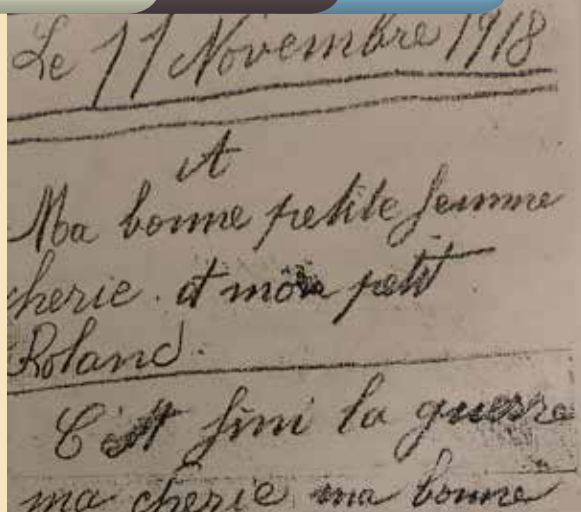 Le 11 Novembre 1918
A
Ma bonne petite femme
cherie. et mon petit
Roland.
C'est fini la guerre
ma cherie ma bonne